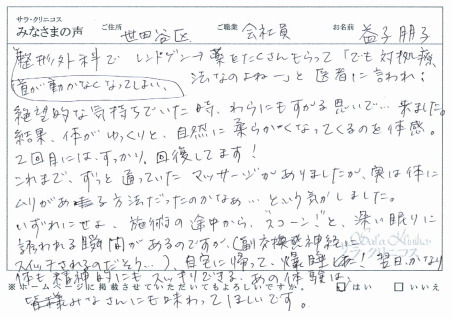 サラ・クリニコス
みなさまの声
ご住所 世田谷区
ご職業 会社員
お名前 益子朋子
整形外科で レントゲン→薬をたくさんもらって「でも対処療
首が動かなくなってしまい、
法なのよねー」と医者に言われ、
絶望的な気持ちでいた時、わらにもすがる思いで…来ました。
結果、体がゆっくりと、自然に柔らかくなってくるのを体感。
2回目には、すっかり回復してます!
これまで、ずっと通っていたマッサージがありましたが、実は体に
ムリがある方法だったのかなぁ…という気がしました。
いずれにせよ、施術の途中から、"スコーン!"と、深い眠りに
誘われる瞬間があるのですが、(副交感神経に
スイッチされるのだそう…)自宅に帰って、爆睡し、翌日かなり
体も精神的にもスッキリできる、あの体験は、
※ホームページに掲載させていただいてもよろしいですか。 はい いいえ
皆様みなさんにも味わってほしいです。